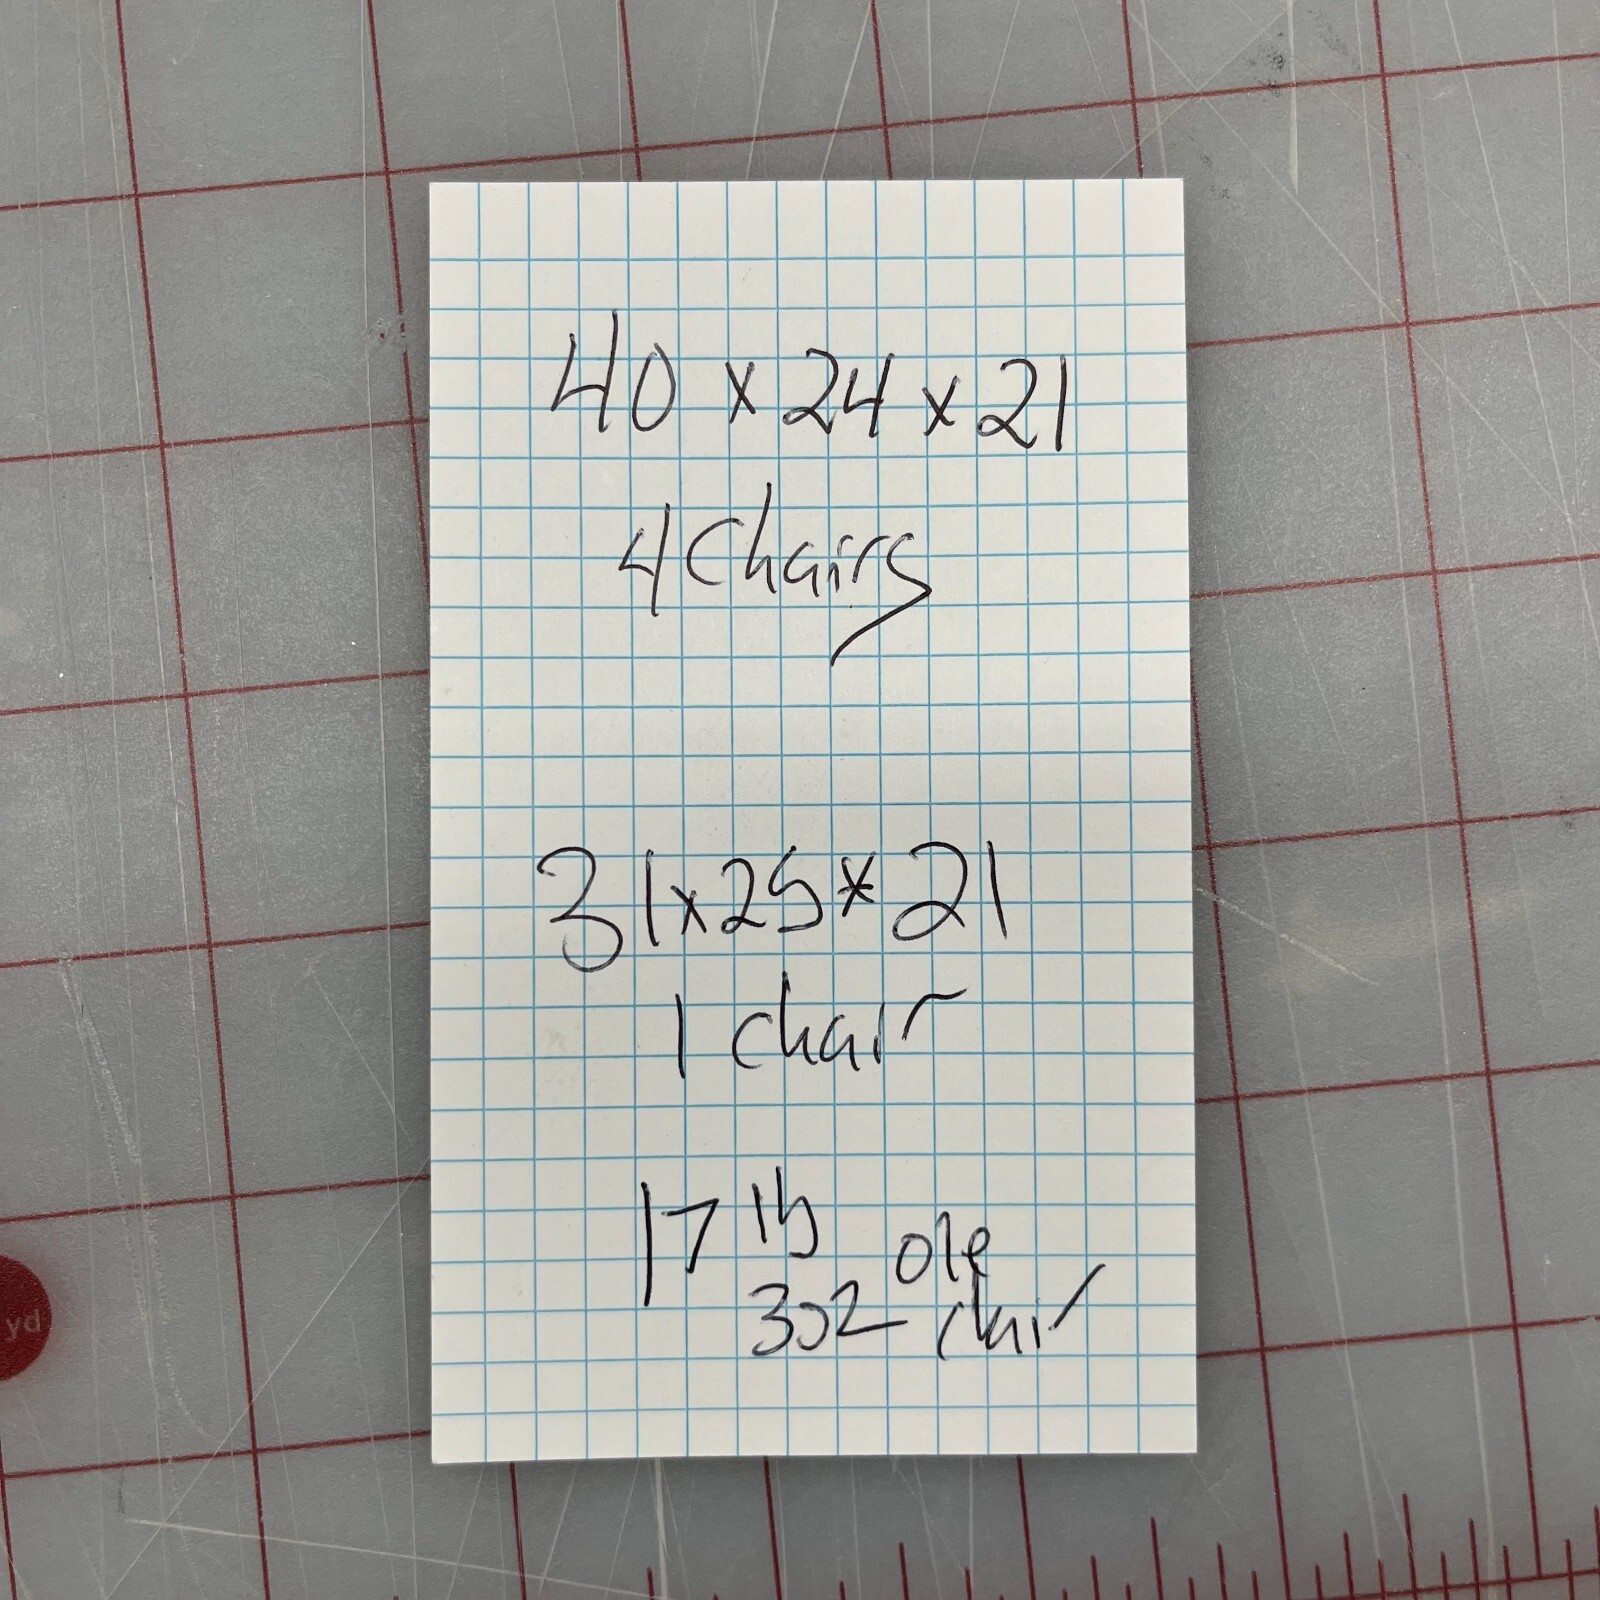 40 x 24 x 21
4 Chairs
31x25x21
1 chair
17 lb
3oz one
chair
yd